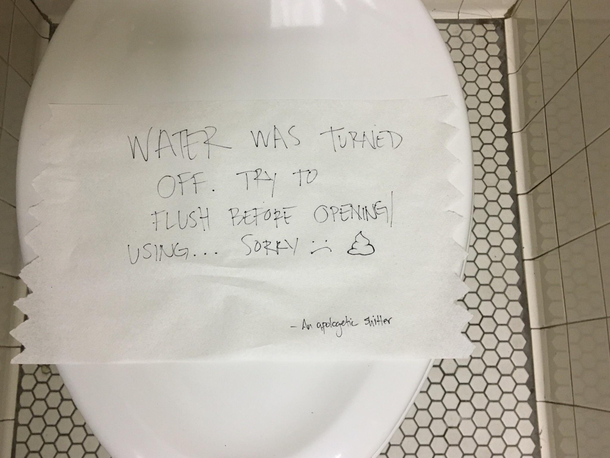 WATER WAS TURNED
OFF. TRY TO
FLUSH BEFORE OPENING/
USING... SORRY :(
- An apologetic shitter